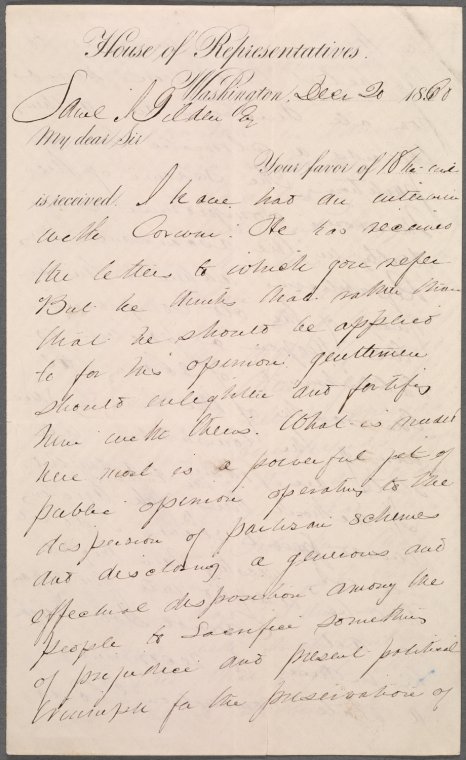 House of Representatives.
Washington, Decr 20 1860
Saml J Tilden Esq
My dear Sir
Your favor of 18th inst
is received. I have had an interview
with Corwin. He has received
the letters to which you refer
But he thinks that rather than
that he should be applied
to for his opinion gentlemen
should enlighten and fortify
him with theirs. What is needed
here most is a powerful jet of
public opinion operating to the
dispersion of partisan schemes
and disclosing a generous and
effectual disposition among the
people to sacrifice something
of prejudice and present political
triumph for the preservation of